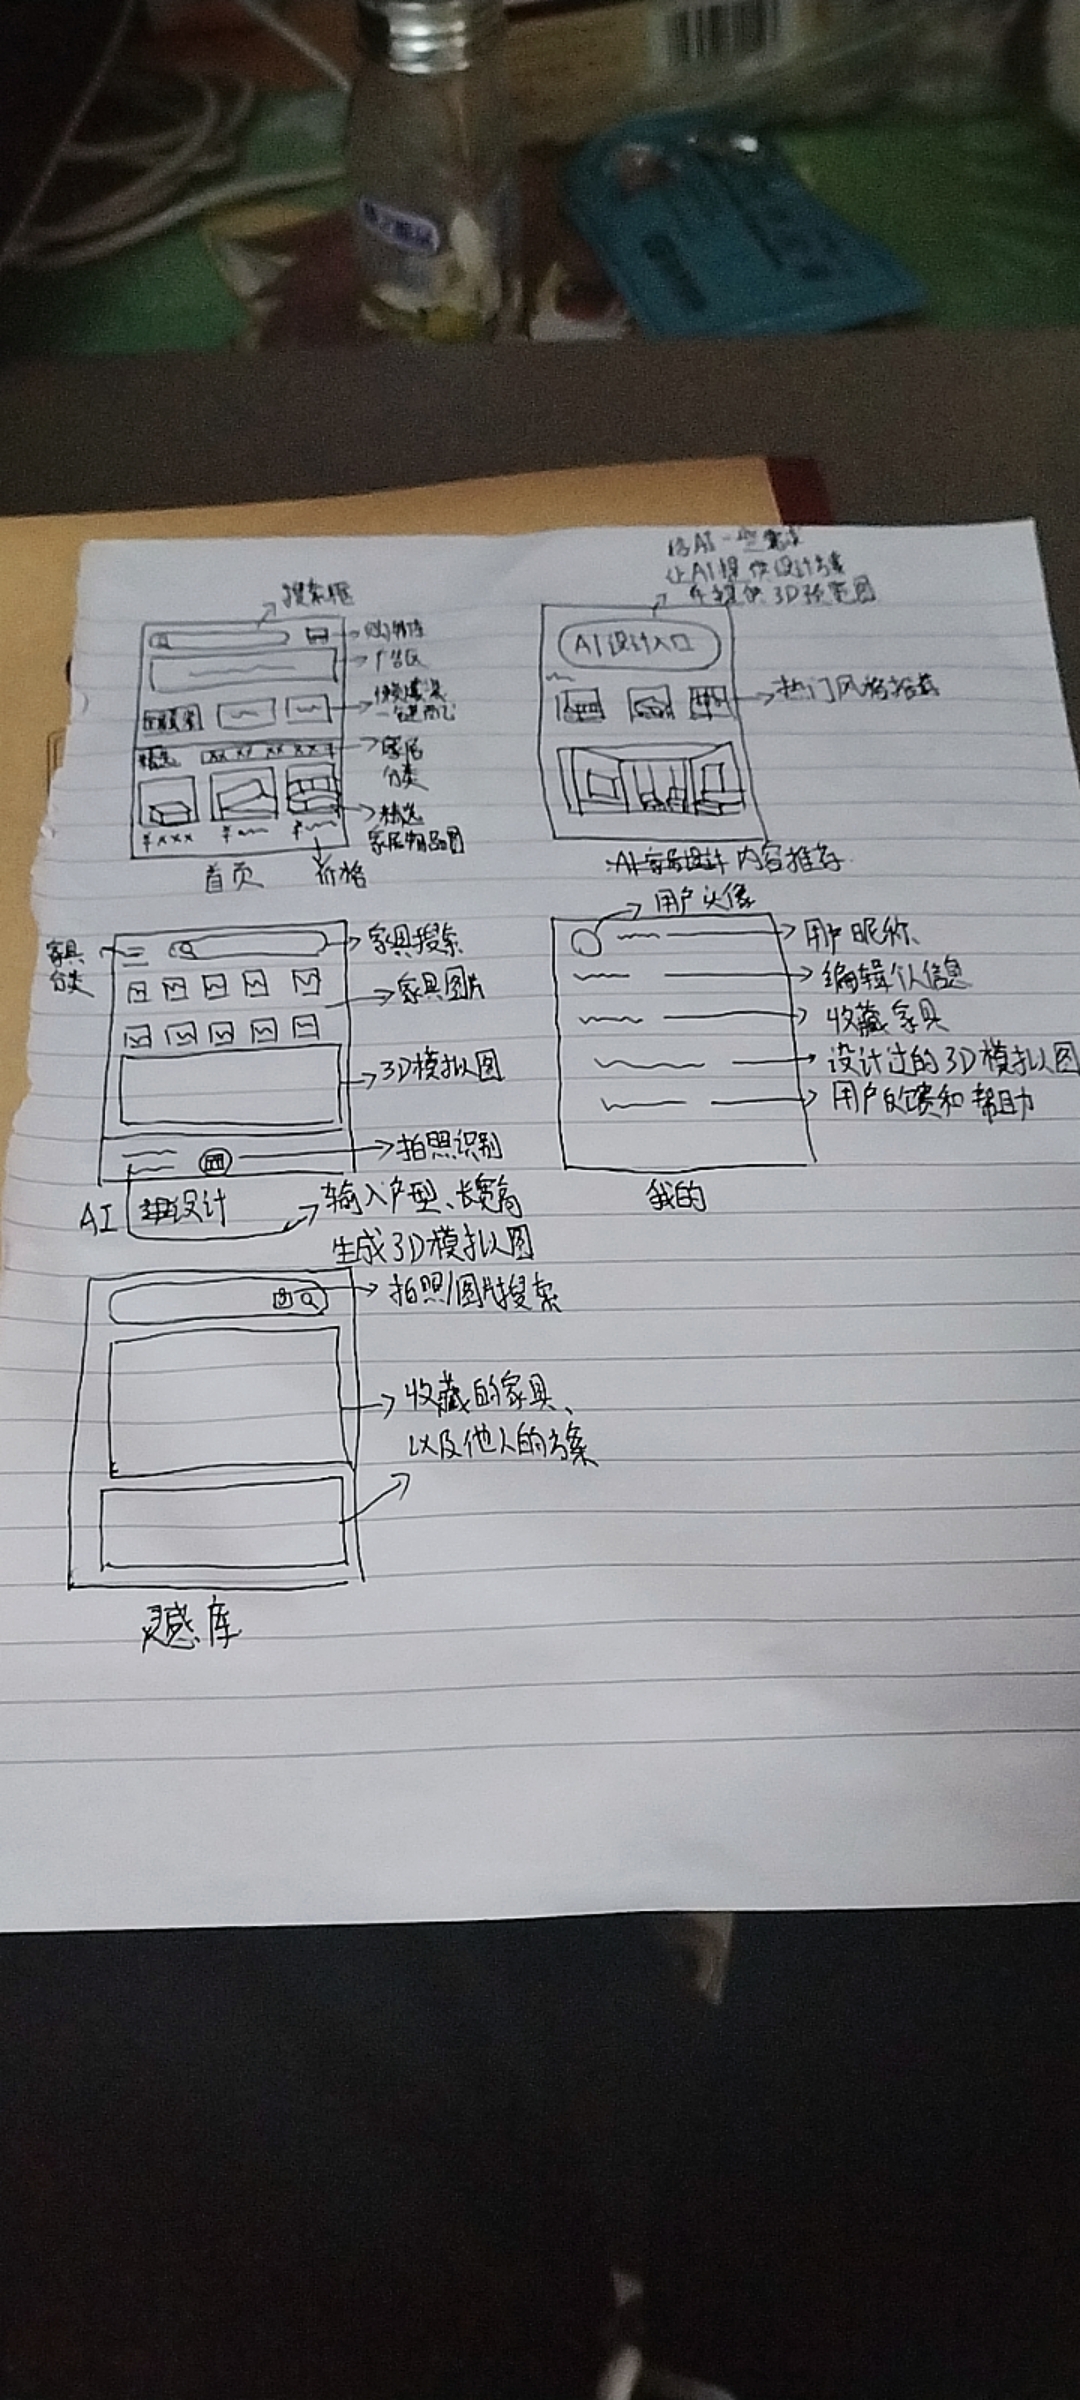 搜索框
购物车
广告区
家居
分类
精选
精选
家居物品图
¥xxx
¥
¥
首页
价格
给AI一些需求
让AI提供设计方案
并提供3D预览图
AI设计入口
热门风格推荐
内容推荐
家具
分类
家具搜索
家具图片
3D模拟图
拍照识别
AI 设计
输入户型、长宽高
生成3D模拟图
用户头像
用户昵称
编辑个人信息
收藏家具
设计过的3D模拟图
用户反馈和帮助
我的
拍照/图片搜索
收藏的家具、
以及他人的方案
灵感库